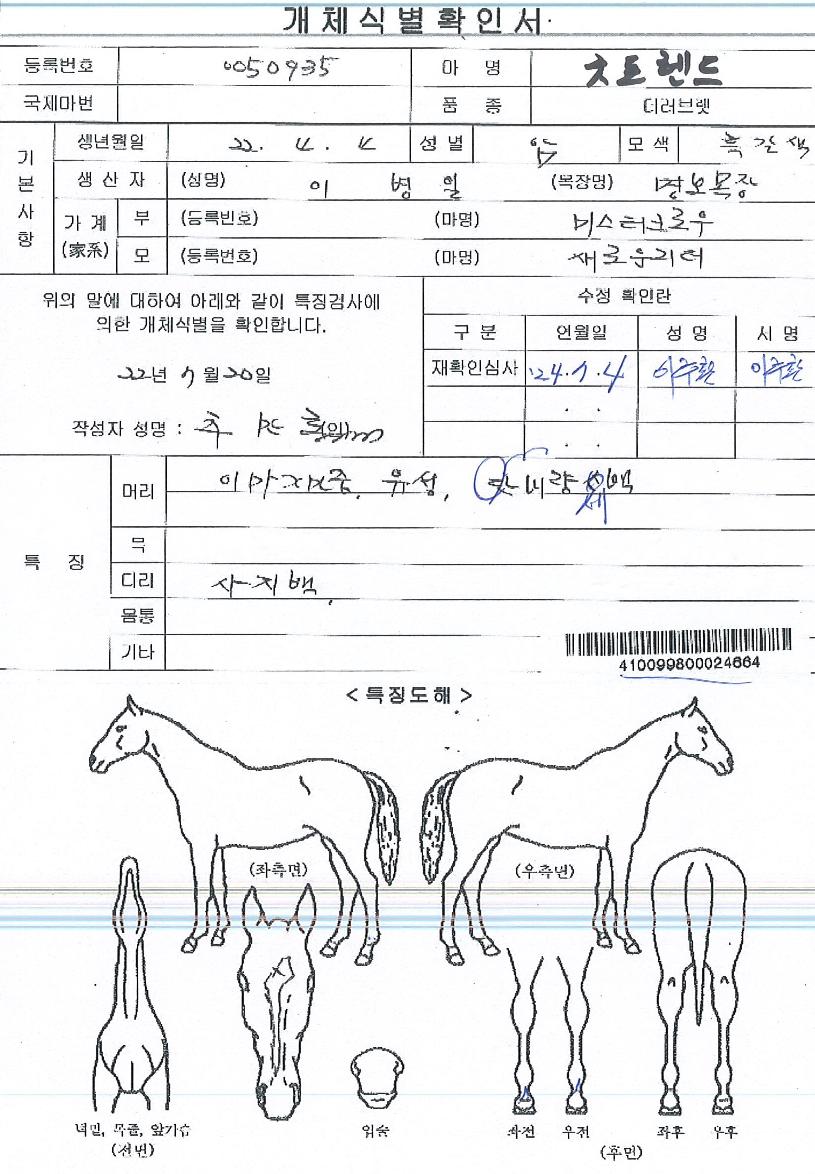 개체식별확인서
등록번호 0050935 마 명 ㅊ프렌드
국제마번 품 종 더러브렛
기본사항
생년월일 22. 4. 4 성 별 암 모 색 흑갈색
생 산 자 (성명) 이 병 일 (목장명) 목장
가 계 (家系)
부 (등록번호) (마명) 미스터크로우
모 (등록번호) (마명) 새로운리더
위의 말에 대하여 아래와 같이 특징검사에
의한 개체식별을 확인합니다.
22년 7월 20일
작성자 성명 : (인)
수정 확인란
구 분 연월일 성 명 서 명
재확인심사 '24. 7. 4 이주환 이주환
. .
. .
특 징
머리 유성,
목
다리 사지백
몸통
기타
410099800024664
< 특징도해 >
(좌측면) (우측면)
턱밑, 목줄, 앞가슴
(전면)
입술
좌전 우전 좌후 우후
(후면)